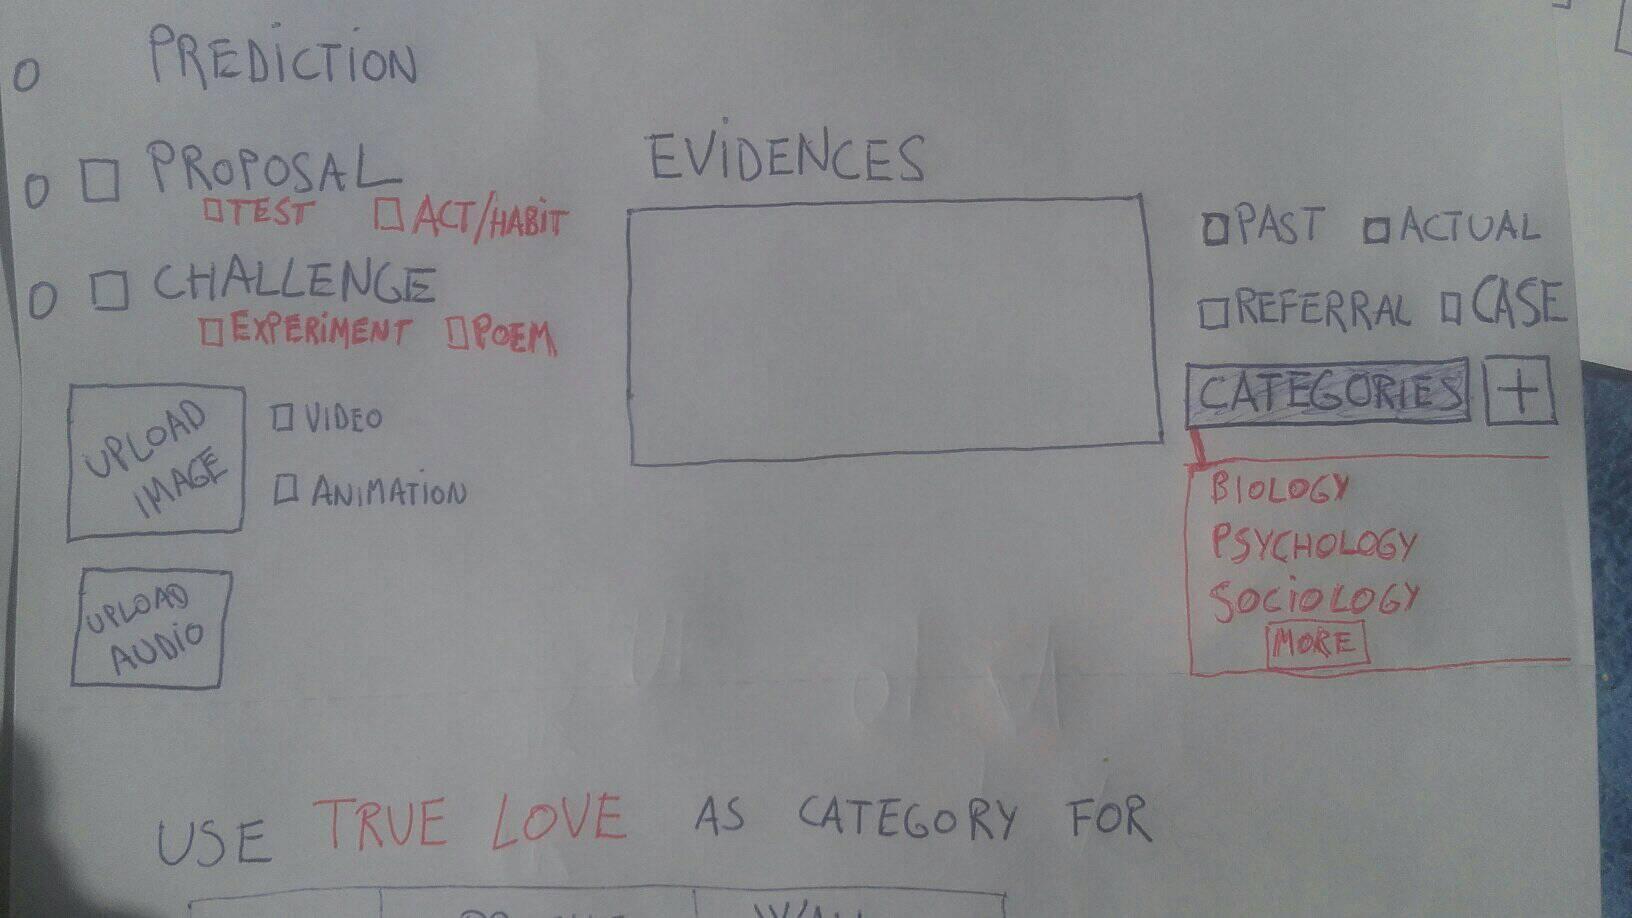 PREDICTION
PROPOSAL
TEST ACT/HABIT
CHALLENGE
EXPERIMENT POEM
UPLOAD
IMAGE
VIDEO
ANIMATION
UPLOAD
AUDIO
EVIDENCES
PAST ACTUAL
REFERRAL CASE
CATEGORIES +
BIOLOGY
PSYCHOLOGY
SOCIOLOGY
MORE
USE TRUE LOVE AS CATEGORY FOR